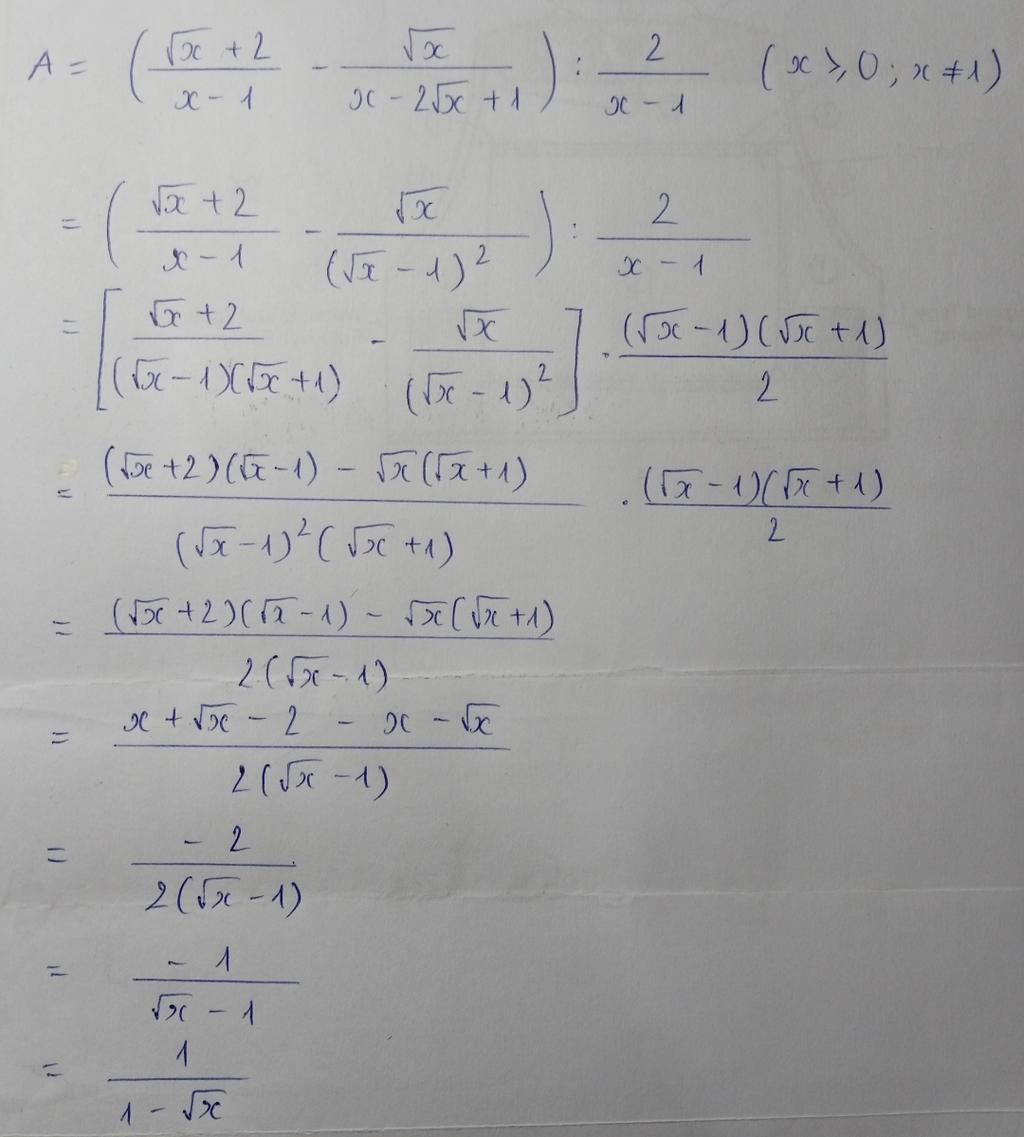 A = ( (√x + 2)/(x - 1) - √x/(x - 2√x + 1) ) : 2/(x - 1) (x ≥ 0; x ≠ 1)
= ( (√x + 2)/(x - 1) - √x/(√x - 1)² ) : 2/(x - 1)
= [ (√x + 2)/((√x - 1)(√x + 1)) - √x/(√x - 1)² ] . ((√x - 1)(√x + 1))/2
= ((√x + 2)(√x - 1) - √x(√x + 1))/((√x - 1)²(√x + 1)) . ((√x - 1)(√x + 1))/2
= ((√x + 2)(√x - 1) - √x(√x + 1))/(2(√x - 1))
= (x + √x - 2 - x - √x)/(2(√x - 1))
= (- 2)/(2(√x - 1))
= (- 1)/(√x - 1)
= 1/(1 - √x)